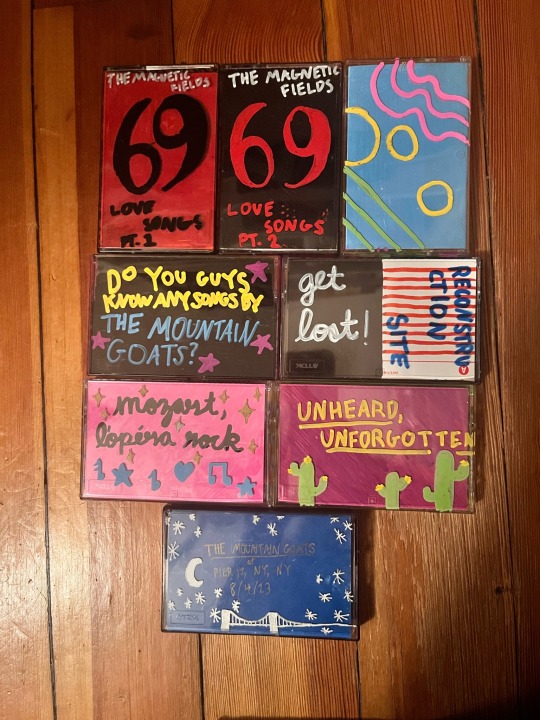 THE MAGNETIC
FIELDS
69
LOVE
SONGS
PT. 1
THE MAGNETIC
FIELDS
69
LOVE
SONGS
PT. 2
DO YOU GUYS
KNOW ANY SONGS BY
THE MOUNTAIN
GOATS?
get
lost!
RECONSTRU
CTION
SITE
mozart,
l'opéra rock
UNHEARD,
UNFORGOTTEN
THE MOUNTAIN GOATS
PIER 17, NY, NY
8/4/23